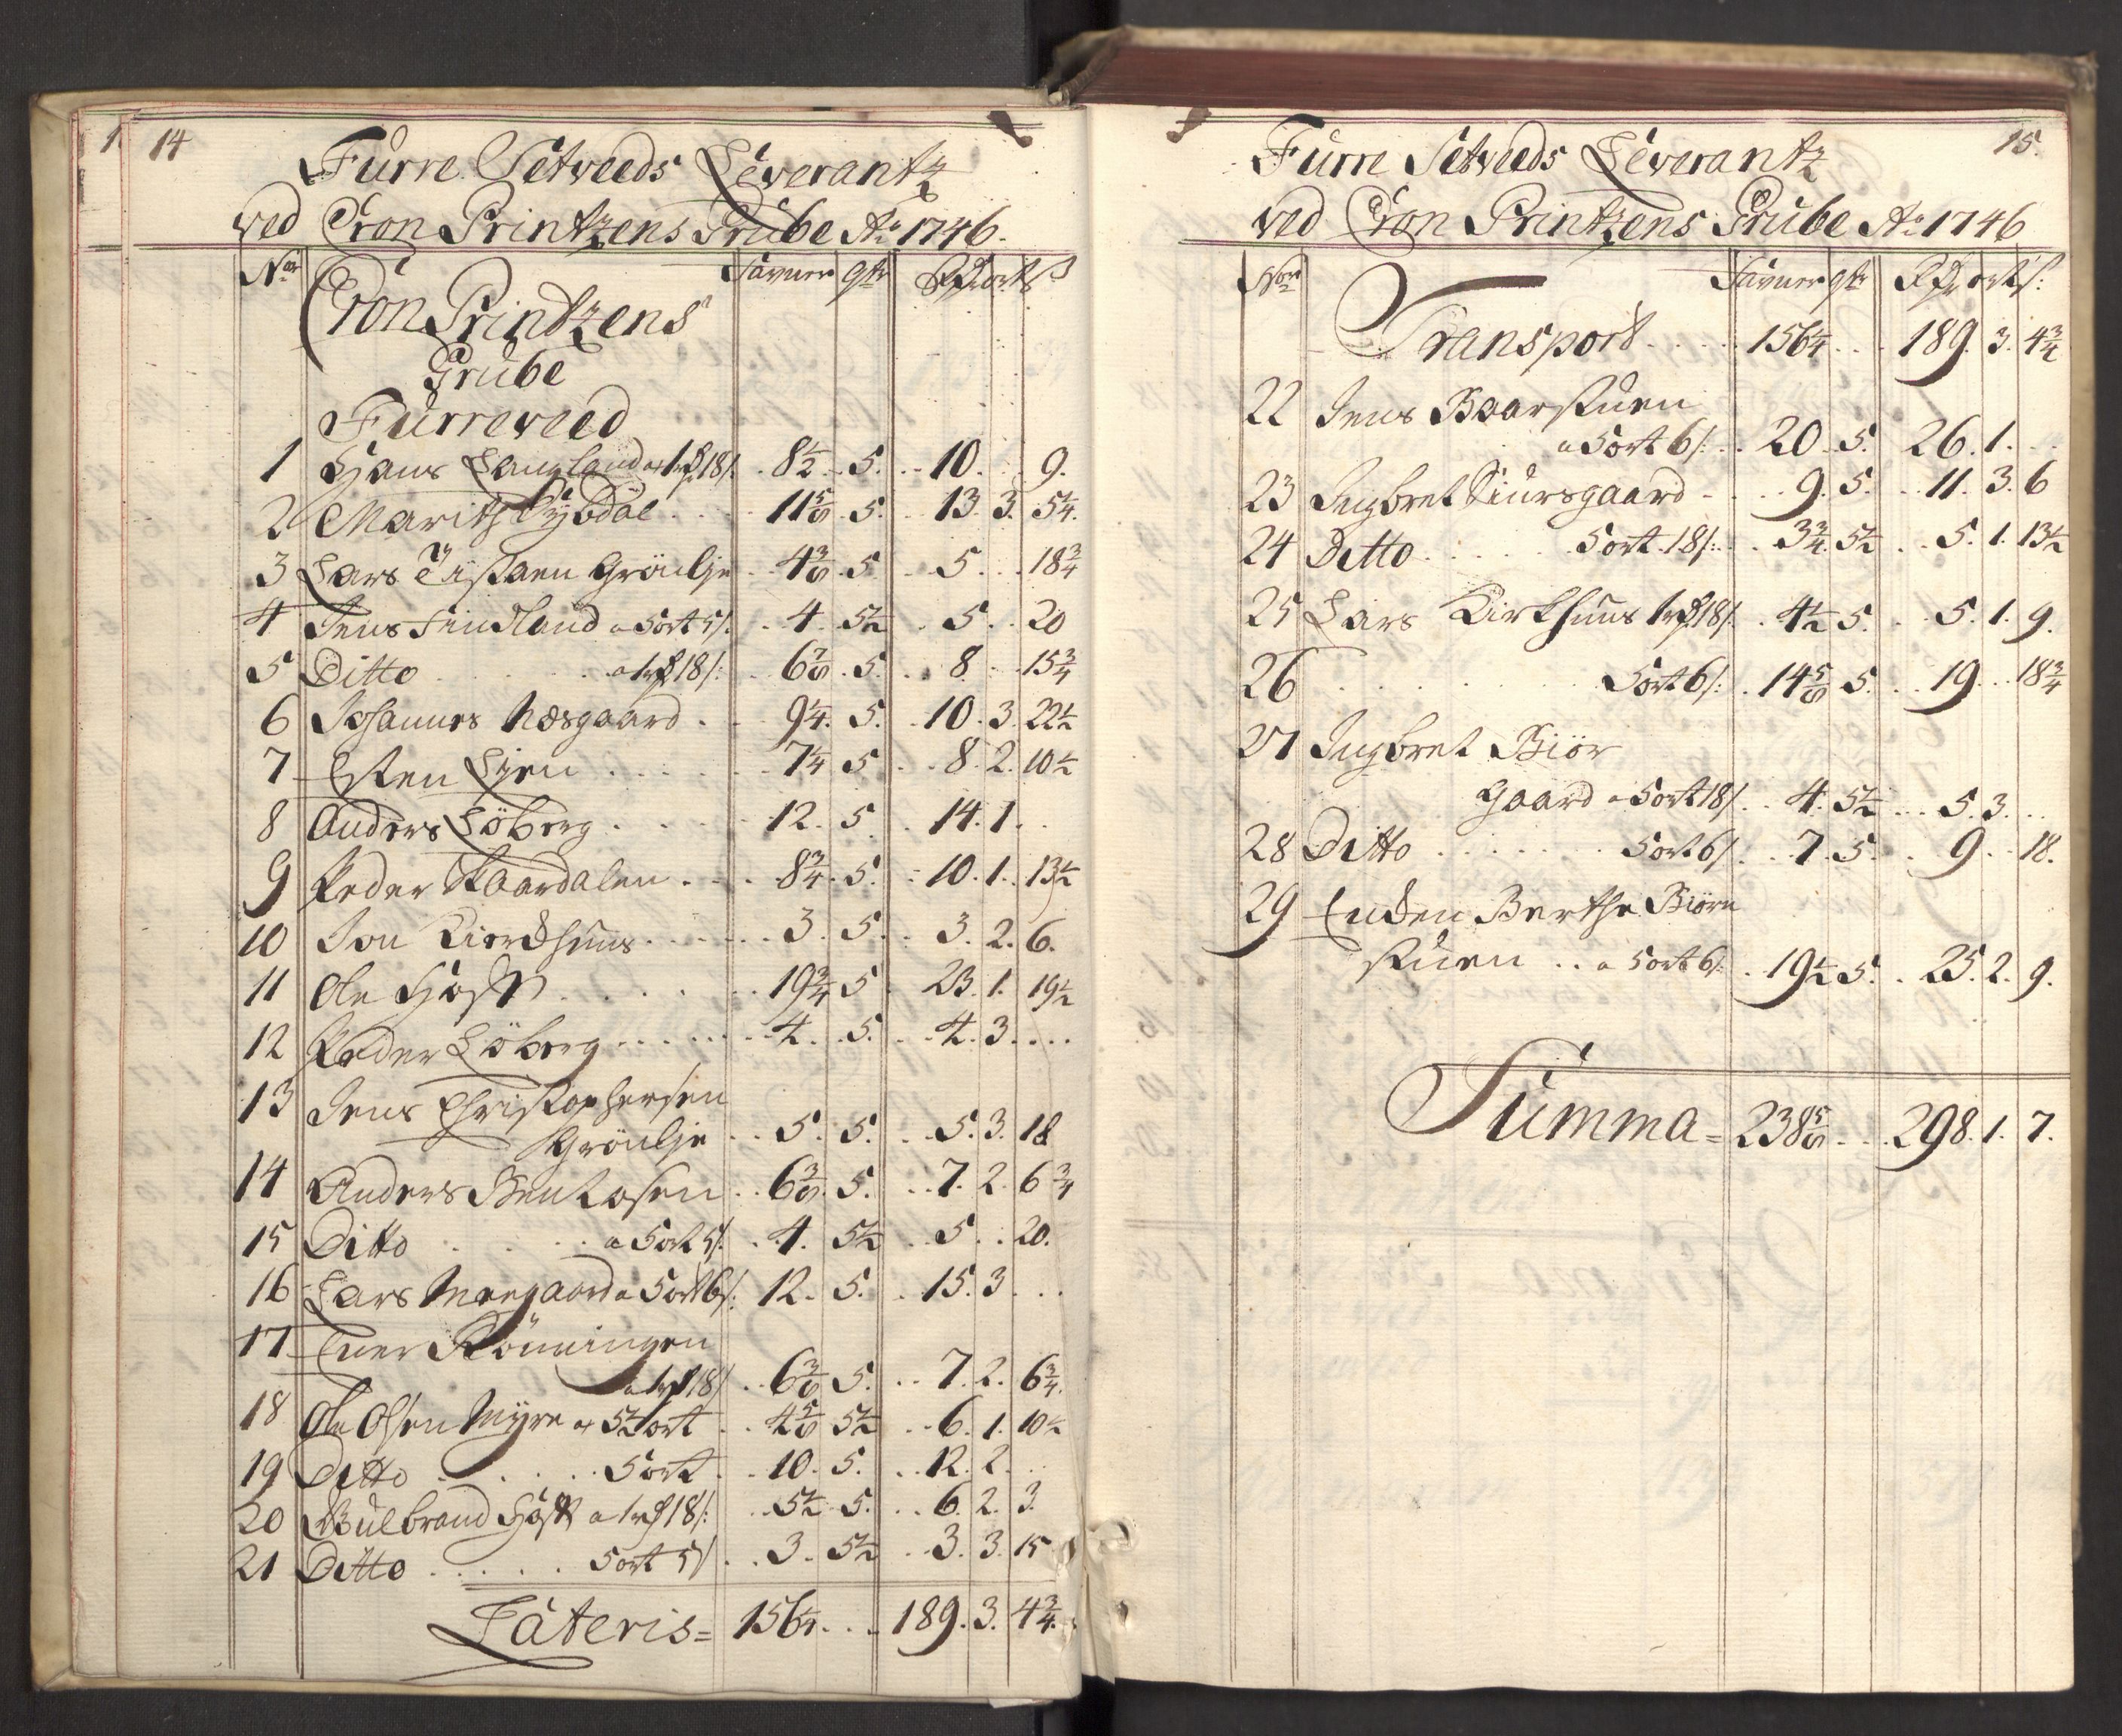 14
Furre Setveeds Leverantz
ved Cron Printzens Grube Ao 1746.
No Favner qtr Rdr ort s
Cron Printzens
Grube
Furreveed
1 Hans Langland a 1 rdr 18 s: 8 1/2 5. 10. 9.
2 Marith Sÿbdal 11 5/8 5. 13 3. 5 1/4.
3 Lars Grøulje 4 3/8 5 5. 18 3/4
4 Jens Findland a 5 ort 5 s: 4. 5 1/2 5. 20
5 Ditto a 1 rdr 18 s: 6 7/8 5. 8 15 3/4
6 Johannes Næsgaard 9 1/4. 5. 10. 3. 22 1/2
7 Esten Lien 7 1/4 5 8. 2. 10 1/2
8 Anders Löberg 12. 5. 14. 1.
9 Peder Skaardalen 8 3/4. 5. 10. 1. 13 1/2
10 Jon Kierkhuus 3. 5. 3. 2. 6.
11 Ole Høst 19 3/4 5 23. 1. 19 1/2
12 Peder Löberg 4. 5. 4. 3
13 Jens Christophersen
Grøulje 5. 5. 5. 3. 18
14 Anders Bentosen 6 3/8. 5. 7. 2. 6 3/4
15 Ditto a 5 ort 5 s: 4. 5 1/2 5 20.
16 Lars Moegaard a 5 ort 6 s: 12. 5. 15. 3
17 Iver Rönningen
a 1 rdr 18 s 6 3/8 5. 7. 2. 6 3/4.
18 Ole Olsen Myre a 5 1/2 ort 4 5/8 5 1/2 6. 1. 10 1/2
19 Ditto 5 ort 10. 5. 12. 2
20 Gulbrand Høst a 1 rdr 18 s: 5 1/2 5. 6. 2. 3.
21 Ditto 5 ort 5 s 3. 5 1/2 3. 3. 15
Lateris = 156 1/4 189. 3. 4 3/4.
15.
Furre Setveeds Leverantz
ved Cron Printzens Grube Ao 1746
No Favner qtr Rdr ort s:
Transport 156 1/4 189. 3. 4 3/4
22 Jens Baarstuen
a 5 ort 6 s: 20. 5. 26. 1.
23 Ingbret Siursgaard 9. 5. 11. 3. 6
24 Ditto 5 ort 18 s: 3 3/4. 5 1/2 5. 1. 13 1/2
25 Lars Kirkhuus 1 rdr 18 s: 4 1/2 5. 5. 1. 9.
26 5 ort 6 s: 14 5/8 5. 19 18 3/4
27 Ingbret Biör
gaard a 5 ort 18 s 4. 5 1/2 5. 3.
28 Ditto 5 ort 6 s 7. 5. 9 18.
29 Enken Berthe Biörn
stuen a 5 ort 6 s: 19 1/2 5. 25. 2. 9.
Summa = 238 5/8 298. 1. 7.